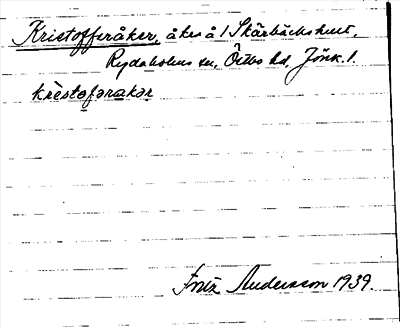 Kristofferåker, åker å 1 Skärbäckshult,
Rydaholms sn, Östbo hd, Jönk. l.
krèstofəråkər
Fritz Andersson 1939.